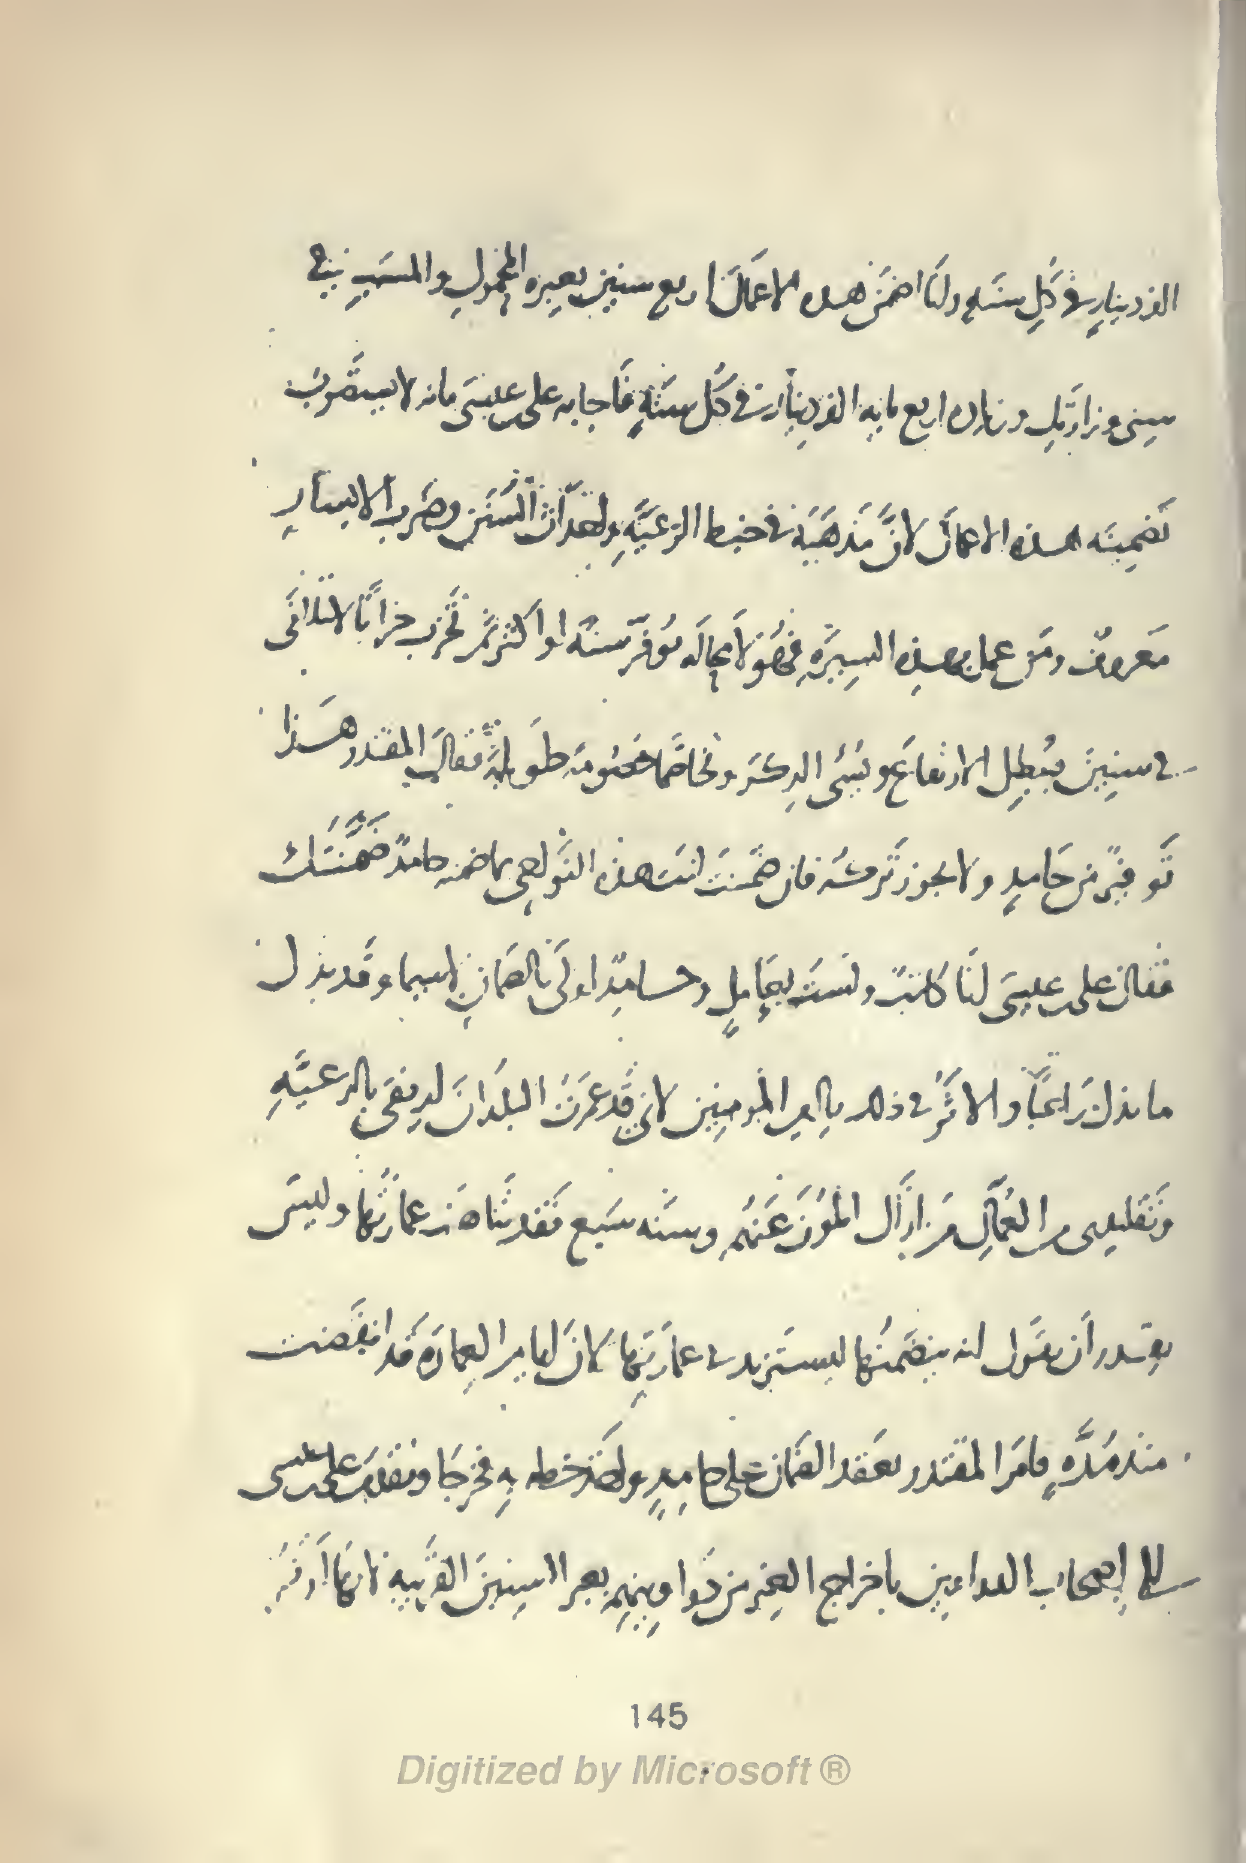 الف دينار في كل سنة وانا اضمن هذه الاعمال اربع سنين بعبرة المحمول والمسبب في
سني وزارتك وزيادة اربع مايه الف دينار في كل سنة فاجابه على بن عيسى بانه لا يستصوب
تضمينه هذه الاعمال لان مذهبه في خبط الرعية واحداث السنن وضرب الابشار
معروف ومن عمل بهذه السيرة فهو لا محالة يوفر سنة او اكثر ثم تخرب خرابا لا يتلافى
في سنين يبطل الارتفاع ويسئ الذكر وتخاصما خصومة طويلة فقال المقتدر هذا
توفير من حامد ولا يجوز تركه فان ضمنت انت هذه النواحي بما ضمنه حامد ضمنتك
فقال على بن عيسى انا كاتب ولست بعامل وحامد اولى بالضمان لا سيما وقد بذل
ما بذل راغبا والاثر في ذلك يا امير المومنين لاني قد عمرت البلدان لرفقي بالرعيه
وتقليدي من العمال من ازال المؤن عنهم وسنه سبع فقد تناهت عمارتها وليس
يقدر ان يقول انه يتضمنها ليستزيد في عمارتها لان ايام العمارة قد انقضت
منذ مدة فامر المقتدر بعقد الضمان على حامد واخذ خطه به فخرجا وتقدم على بن عيسى
الى اصحاب الدواوين باخراج العبر من دواوينهم بعبر السنين القريبه فانها
145
Digitized by Microsoft ®